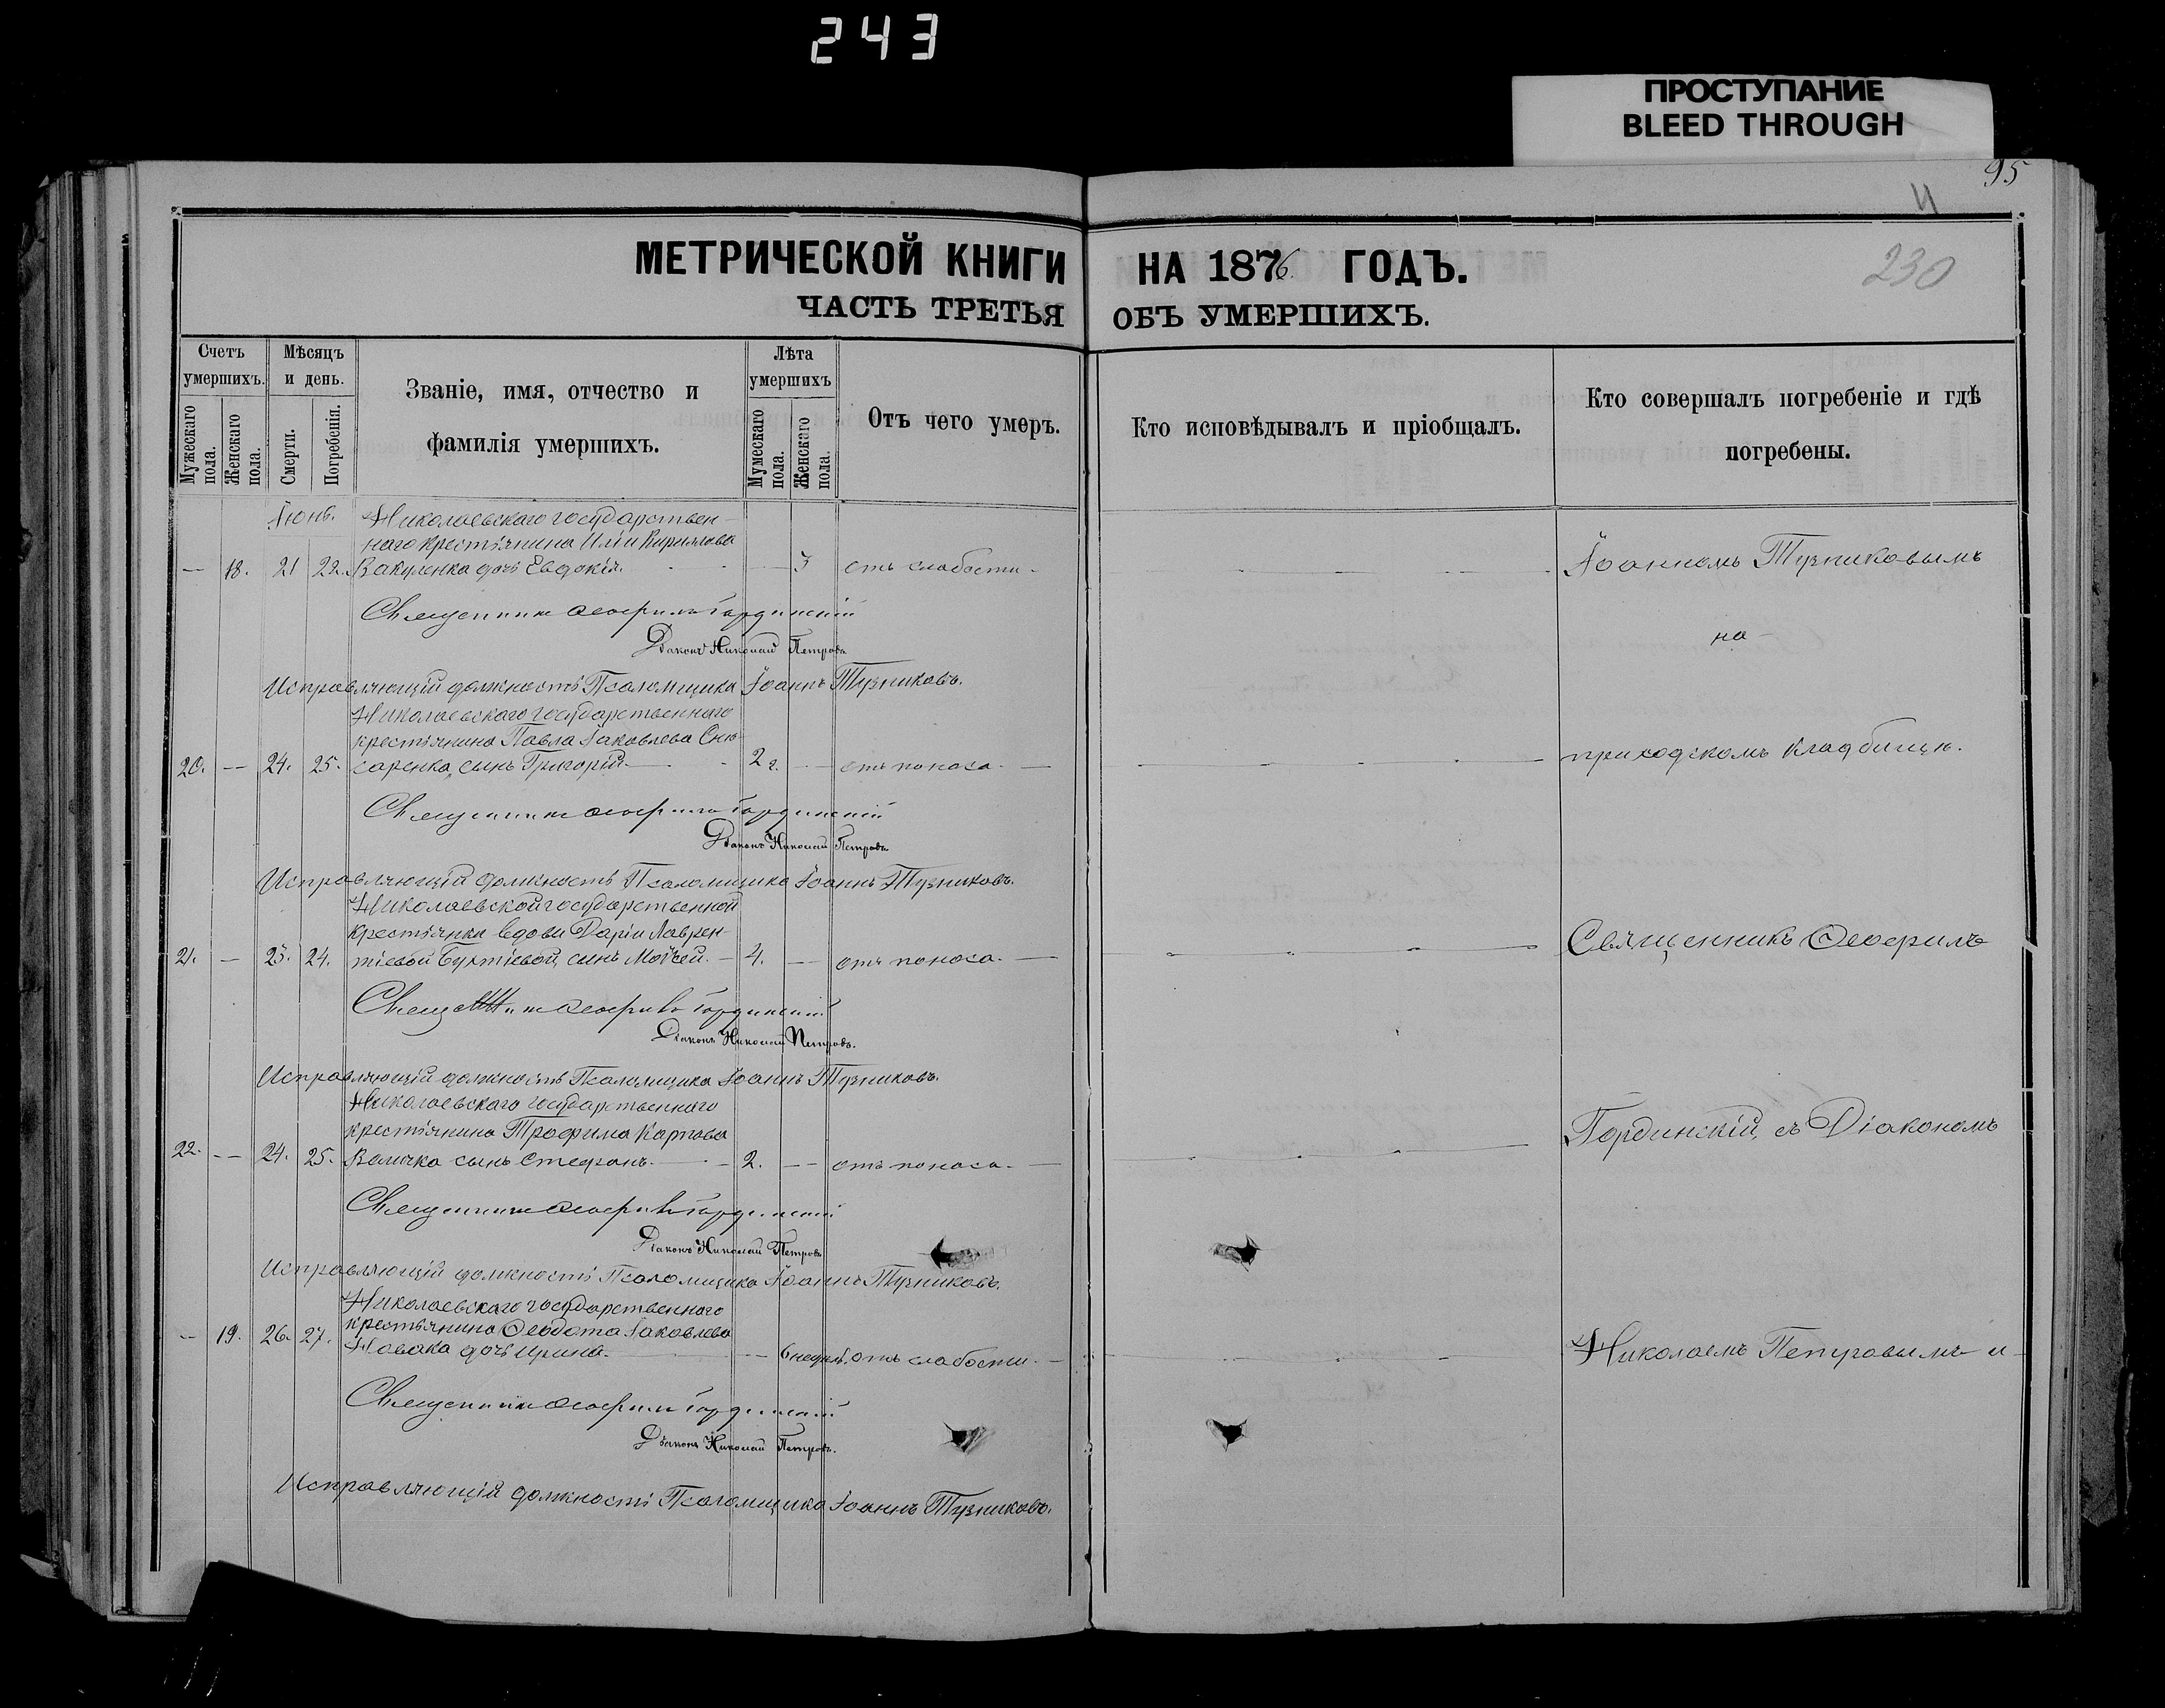 243
ПРОСТУПАНИЕ
BLEED THROUGH
95
230
МЕТРИЧЕСКОЙ КНИГИ НА 1876. ГОДЪ.
ЧАСТЬ ТРЕТЬЯ ОБЪ УМЕРШИХЪ.
Счетъ умершихъ.
Мужескаго пола.
Женскаго пола.
Мѣсяцъ и день.
Смерти.
Погребенія.
Званіе, имя, отчество и
фамилія умершихъ.
Лѣта умершихъ
Мужескаго пола.
Женскаго пола.
Отъ чего умеръ.
Кто исповѣдывалъ и пріобщалъ.
Кто совершалъ погребеніе и гдѣ
погребены.
Іюнь. Николаевскаго государствен-
наго крестьянина Иліи Кирилова
— 18. 21 22. Вакуленка дочь Евдокія. — 3 отъ слабости. Іоанномъ Тузниковымъ
Священникъ Ѳеофилъ Гординскій
на
Діаконъ Николай Петровъ
Исправляющій должность Псаломщика Іоаннъ Тузниковъ.
Николаевскаго государственнаго
крестьянина Павла Іаковлева Слю-
20. — 24. 25. саренка, сынъ Григорій. 2 г. — отъ поноса. — приходскомъ кладбищѣ.
Священникъ Ѳеофилъ Гординскій
Діаконъ Николай Петровъ
Исправляющій должность Псаломщика Іоаннъ Тузниковъ.
Николаевской государственной
крестьянки вдовы Даріи Лаврен-
21. — 23. 24. тіевой сынъ Мойсей. — 4. — отъ поноса. — Священникъ Ѳеофилъ
Священникъ Ѳеофилъ Гординскій
Діаконъ Николай Петровъ.
Исправляющій должность Псаломщика Іоаннъ Тузниковъ.
Николаевскаго государственнаго
крестьянина Трофима Карпова
22. — 24. 25. Величка сынъ Стефанъ. — 2. — отъ поноса. — Гординскій, съ Діакономъ
Священникъ Ѳеофилъ Гординскій
Діаконъ Николай Петровъ
Исправляющій должность Псаломщика Іоаннъ Тузниковъ.
Николаевскаго государственнаго
крестьянина Ѳеодота Іаковлева
— 19. 26. 27. Новака дочь Ирина. — 6 недѣл. отъ слабости. — Николаемъ Петровымъ и
Священникъ Ѳеофилъ Гординскій
Діаконъ Николай Петровъ.
Исправляющій должность Псаломщика Іоаннъ Тузниковъ.